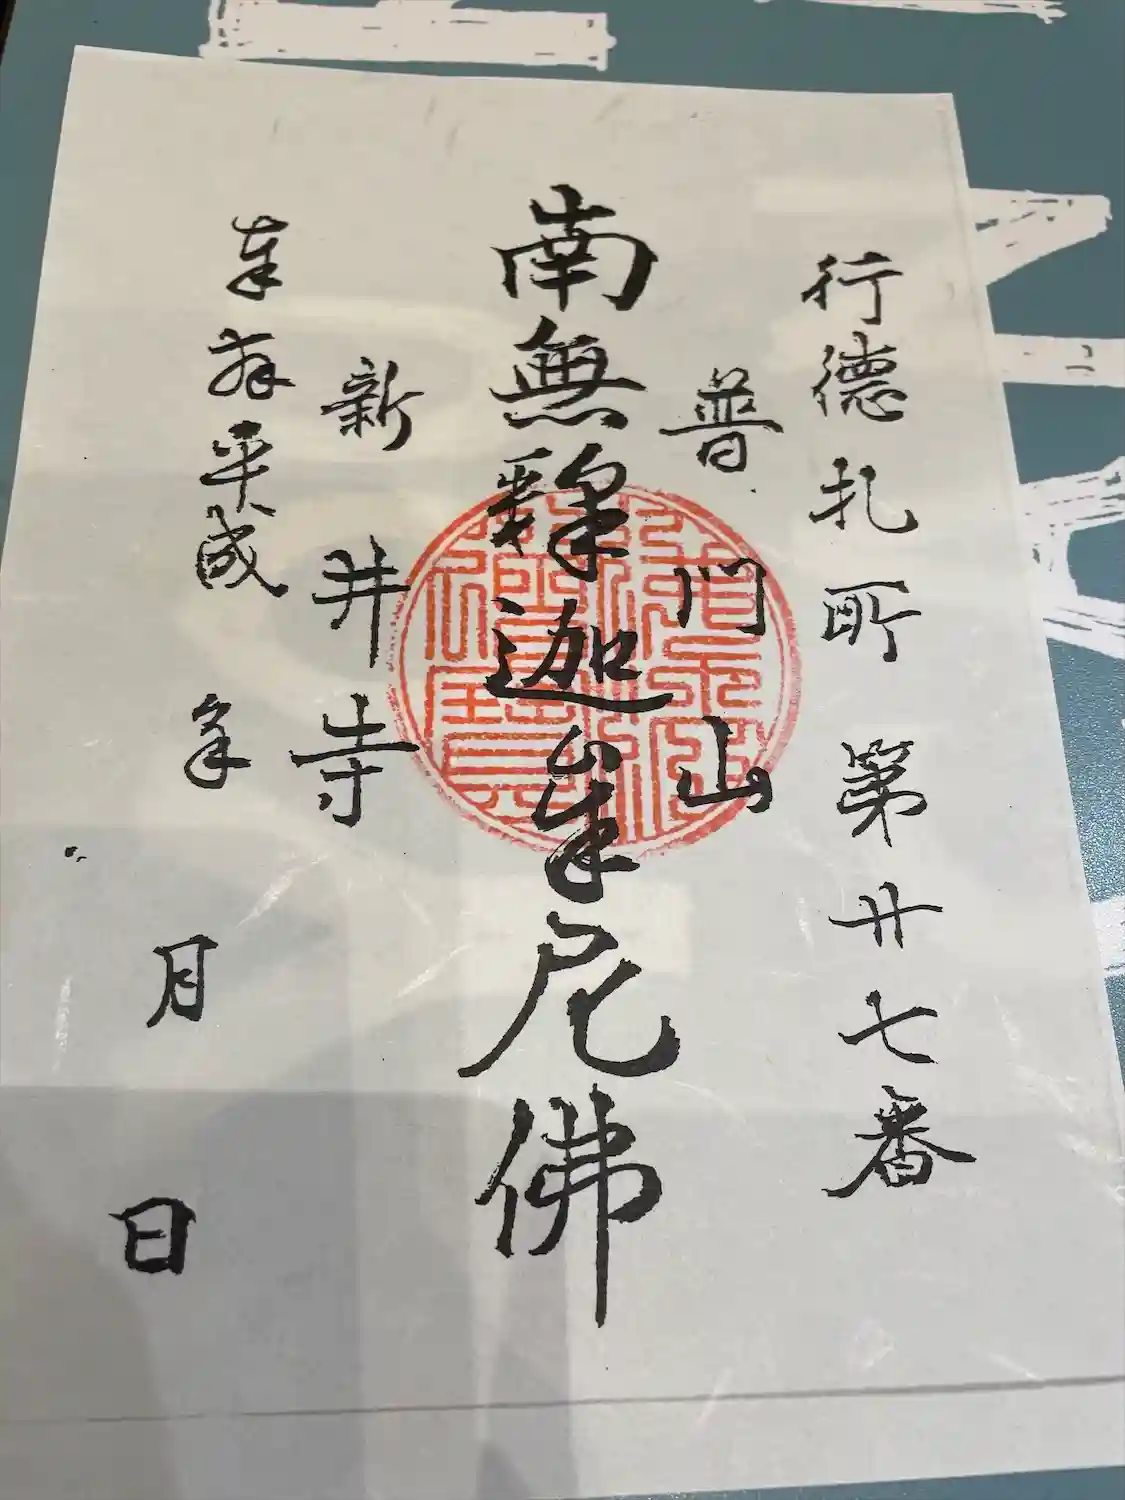 行徳札所 第廿七番
普門山
南無釋迦牟尼佛
新井寺
奉拝 平成 年 月 日